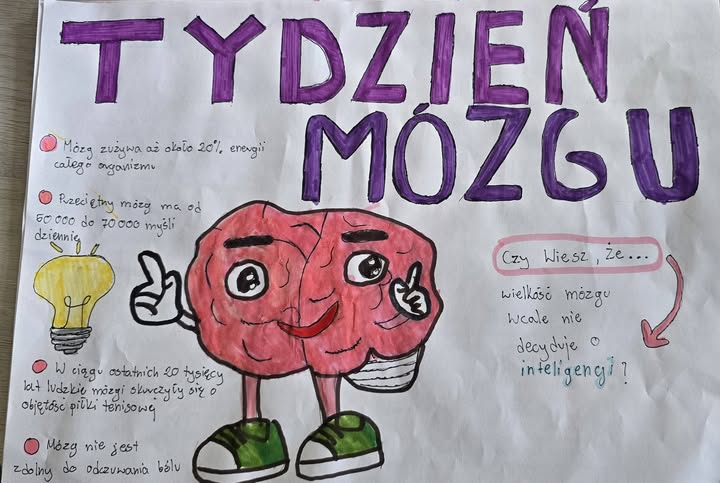 TYDZIEŃ
MÓZGU
Mózg zużywa aż około 20% energii
całego organizmu
Przeciętny mózg ma od
50 000 do 70 000 myśli
dziennie
W ciągu ostatnich 20 tysięcy
lat ludzkie mózgi skurczyły się o
objętość piłki tenisowej
Mózg nie jest
zdolny do odczuwania bólu
Czy Wiesz, Że...
wielkość mózgu
wcale nie
decyduje o
inteligencji?